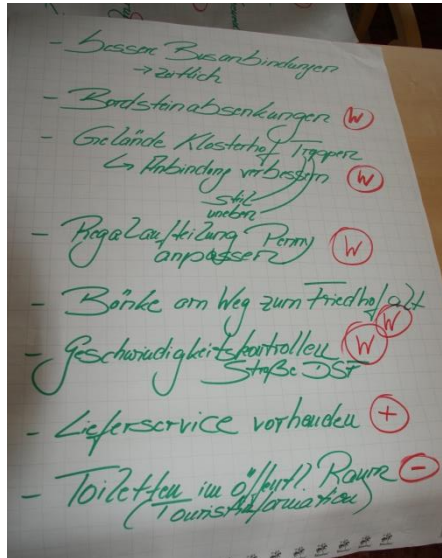 - bessere Busanbindungen
→ zeitlich
- Bordsteinabsenkungen W
- Gelände Klosterhof Treppen
↳ Anbindung verbessern W
steil
uneben
- Regalaufteilung Penny W
anpassen
- Bänke am Weg zum Friedhof alt W
- Geschwindigkeitskontrollen W
Straße DSF
- Lieferservice vorhanden +
- Toiletten im öffentl. Raum -
(Touristinformation)